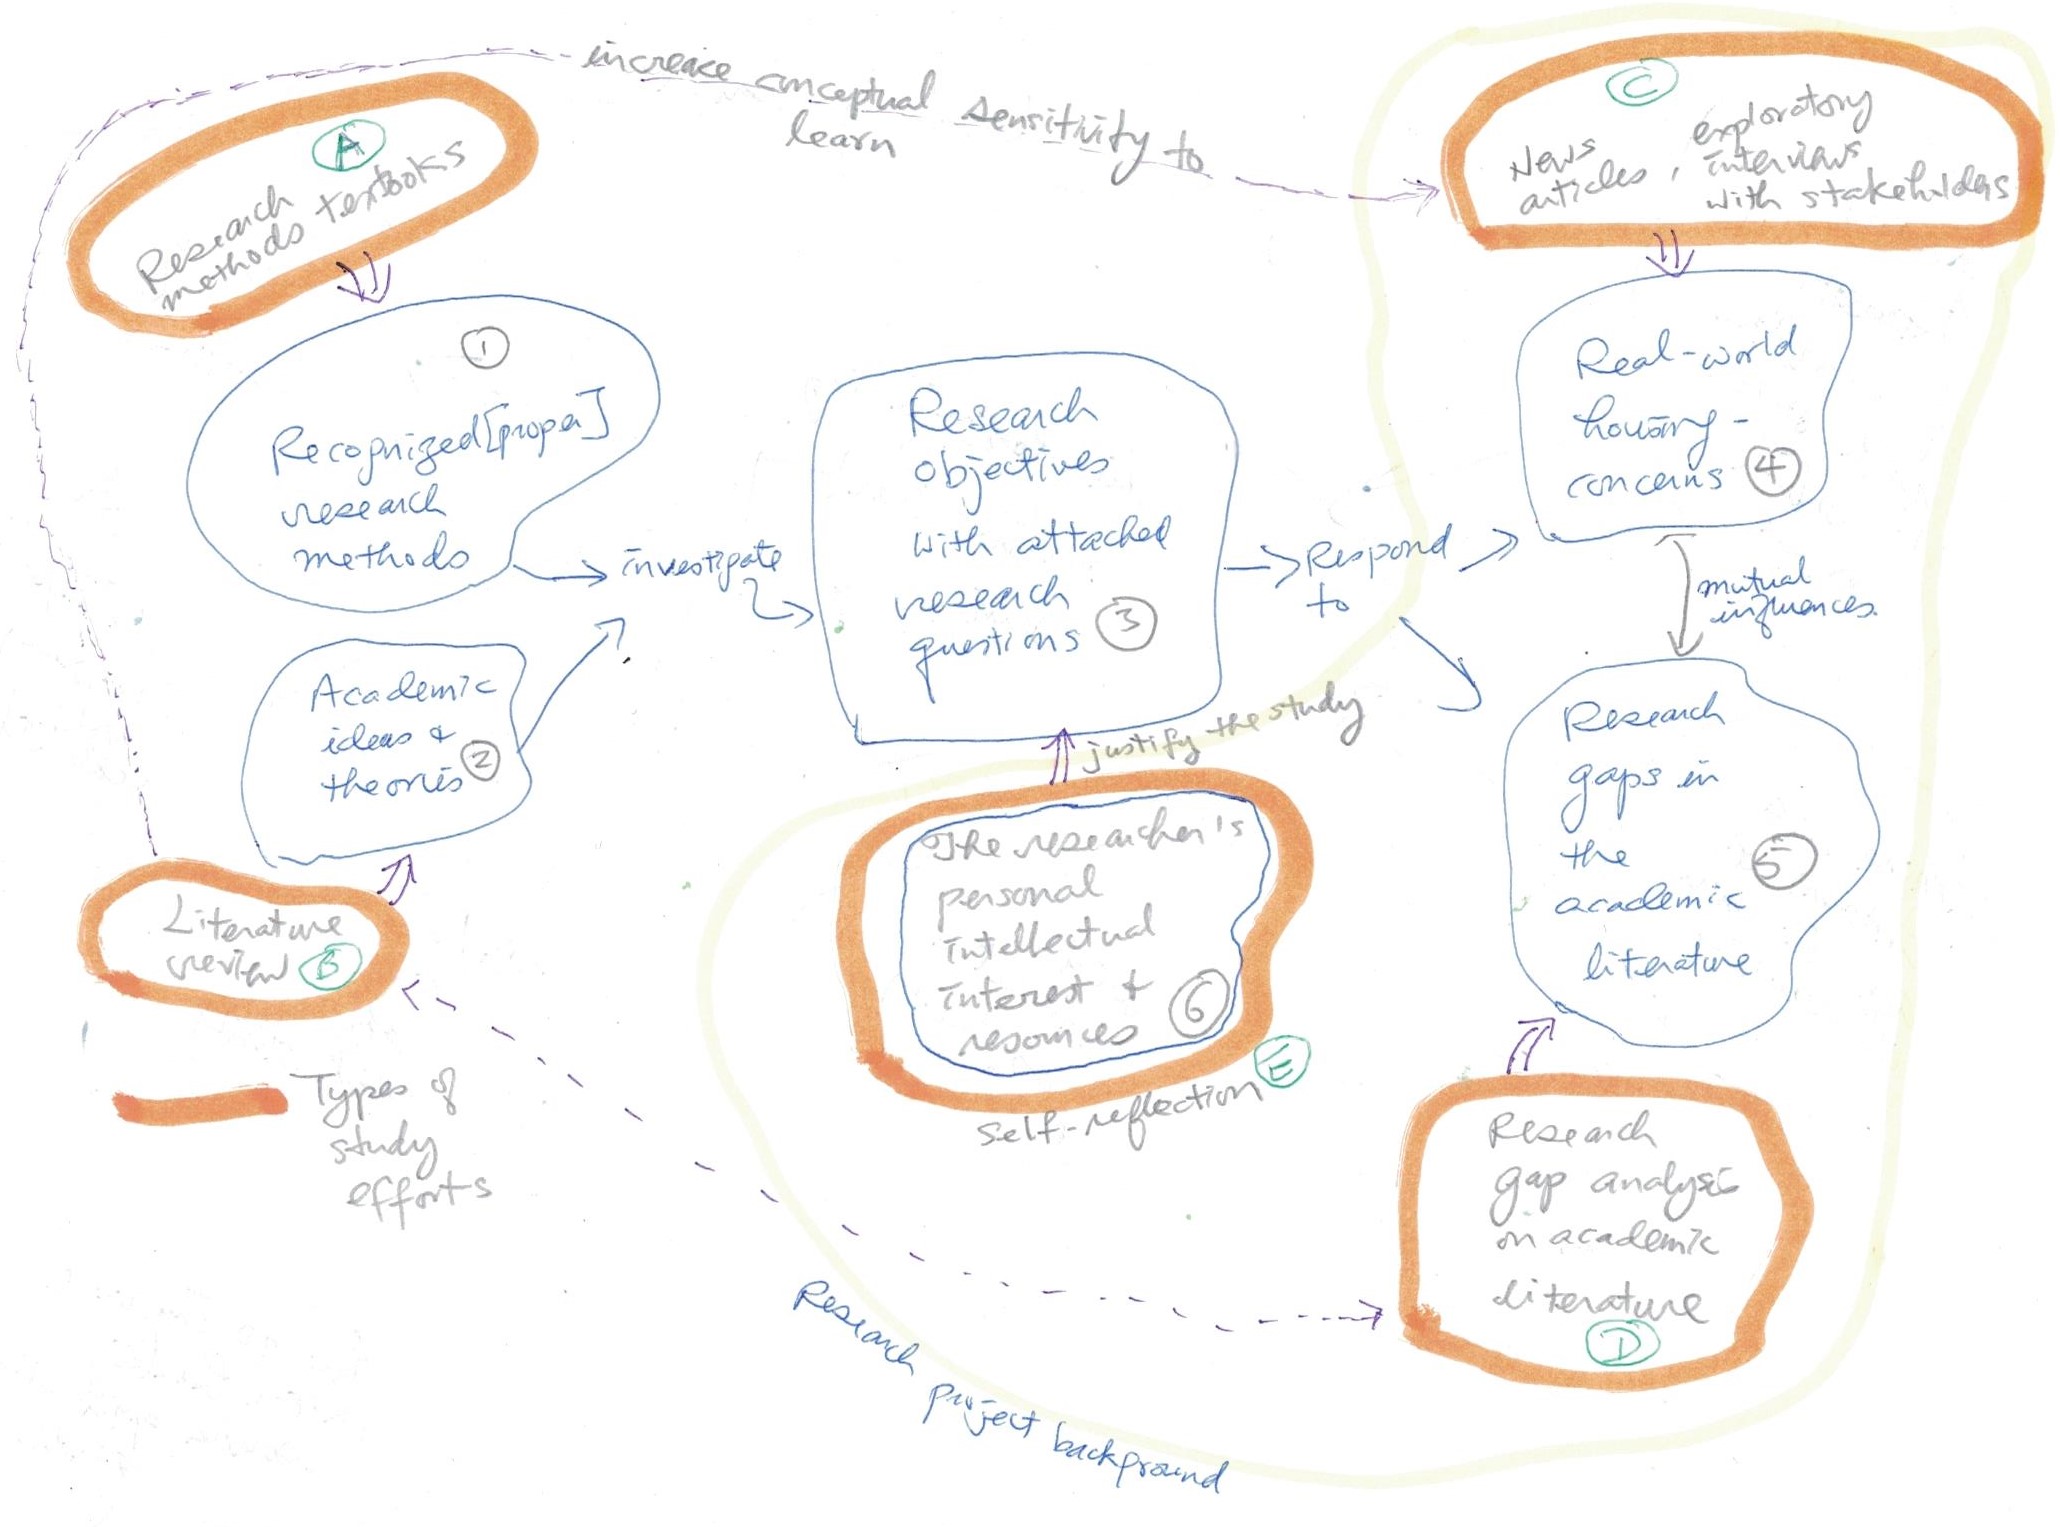 increase conceptual sensitivity to
learn
A
Research
methods textbooks
C
News
articles,
exploratory
interviews
with stakeholders
1
Recognized [proper]
research
methods
investigate
Research
objectives
with attached
research
questions 3
Respond
to
Real-world
housing-
concerns 4
mutual
influences.
Academic
ideas &
theories 2
justify the study
Research
gaps in
the 5
academic
literature
Literature
review B
The researcher's
personal
intellectual
interest & 6
resources
self-reflection E
Types of
study
efforts
Research
gap analysis
on academic
literature
D
Research project background